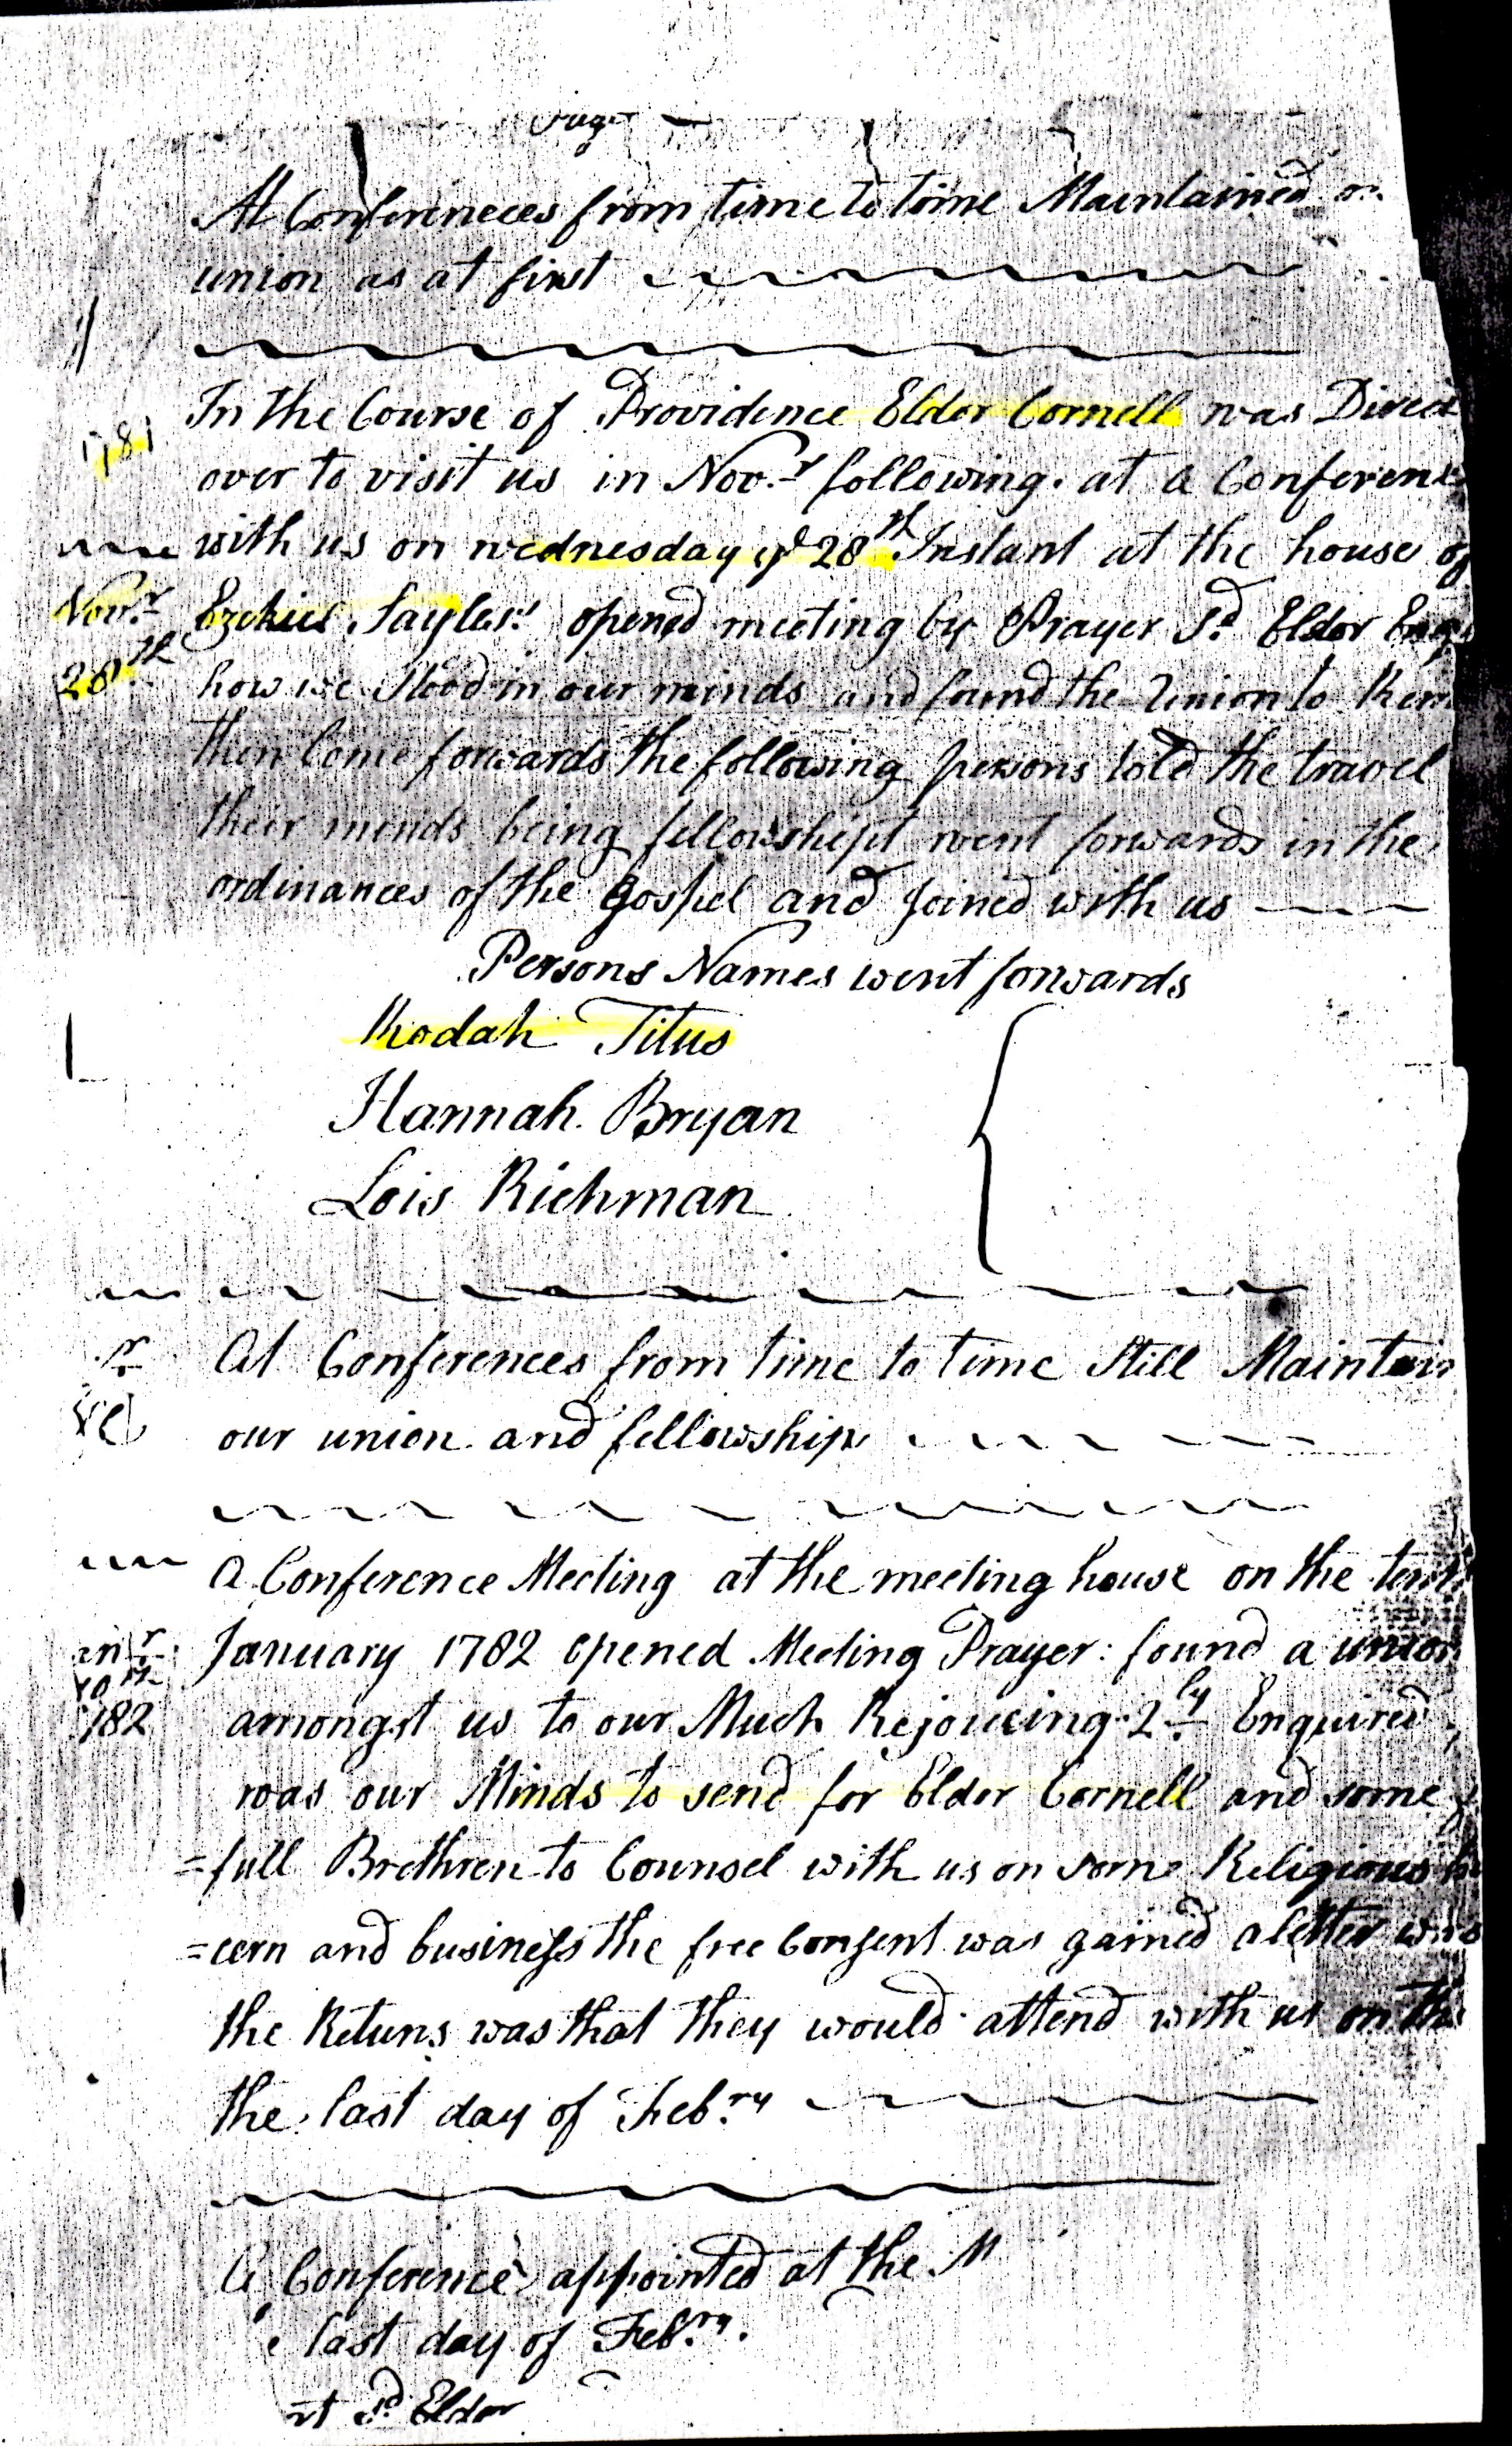 Augt
At Conferineces from time to time Maintained
union as at first
In the Course of Providence Elder Cornell was Direct
1781
over to visit us in Nov.r following. at a Conferenc
with us on wednesday ye 28th Instant at the house of
Nov.r
Ezekiel Sayles! opened meeting by Prayer Sd Elder Enq
28th
how we Stood in our minds and found the Union to Rem
then Come forwards the following persons told the travel
their minds being fellowshipt went forwards in the
ordinances of the Gospel and joined with us
Persons Names went forwards
Rhodah Titus
Hannah Bryan
Lois Richman
At Conferences from time to time Still Maintain
our union and fellowship
A Conference Meeting at the meeting house on the tenth
January 1782 opened Meeting Prayer: found a union
anr
10th
amongst us to our Much Rejouicing 2ly Enquired
782
was our Minds to send for Elder Cornell and some
=full Brethren to Counsel with us on some Religious
=cern and business the free Consent was gained a letter was
the Retuns was that they would attend with us on the
the last day of Feb.ry
A Conference appointed at the M
e last day of Feb.ry.
at Sd Elder